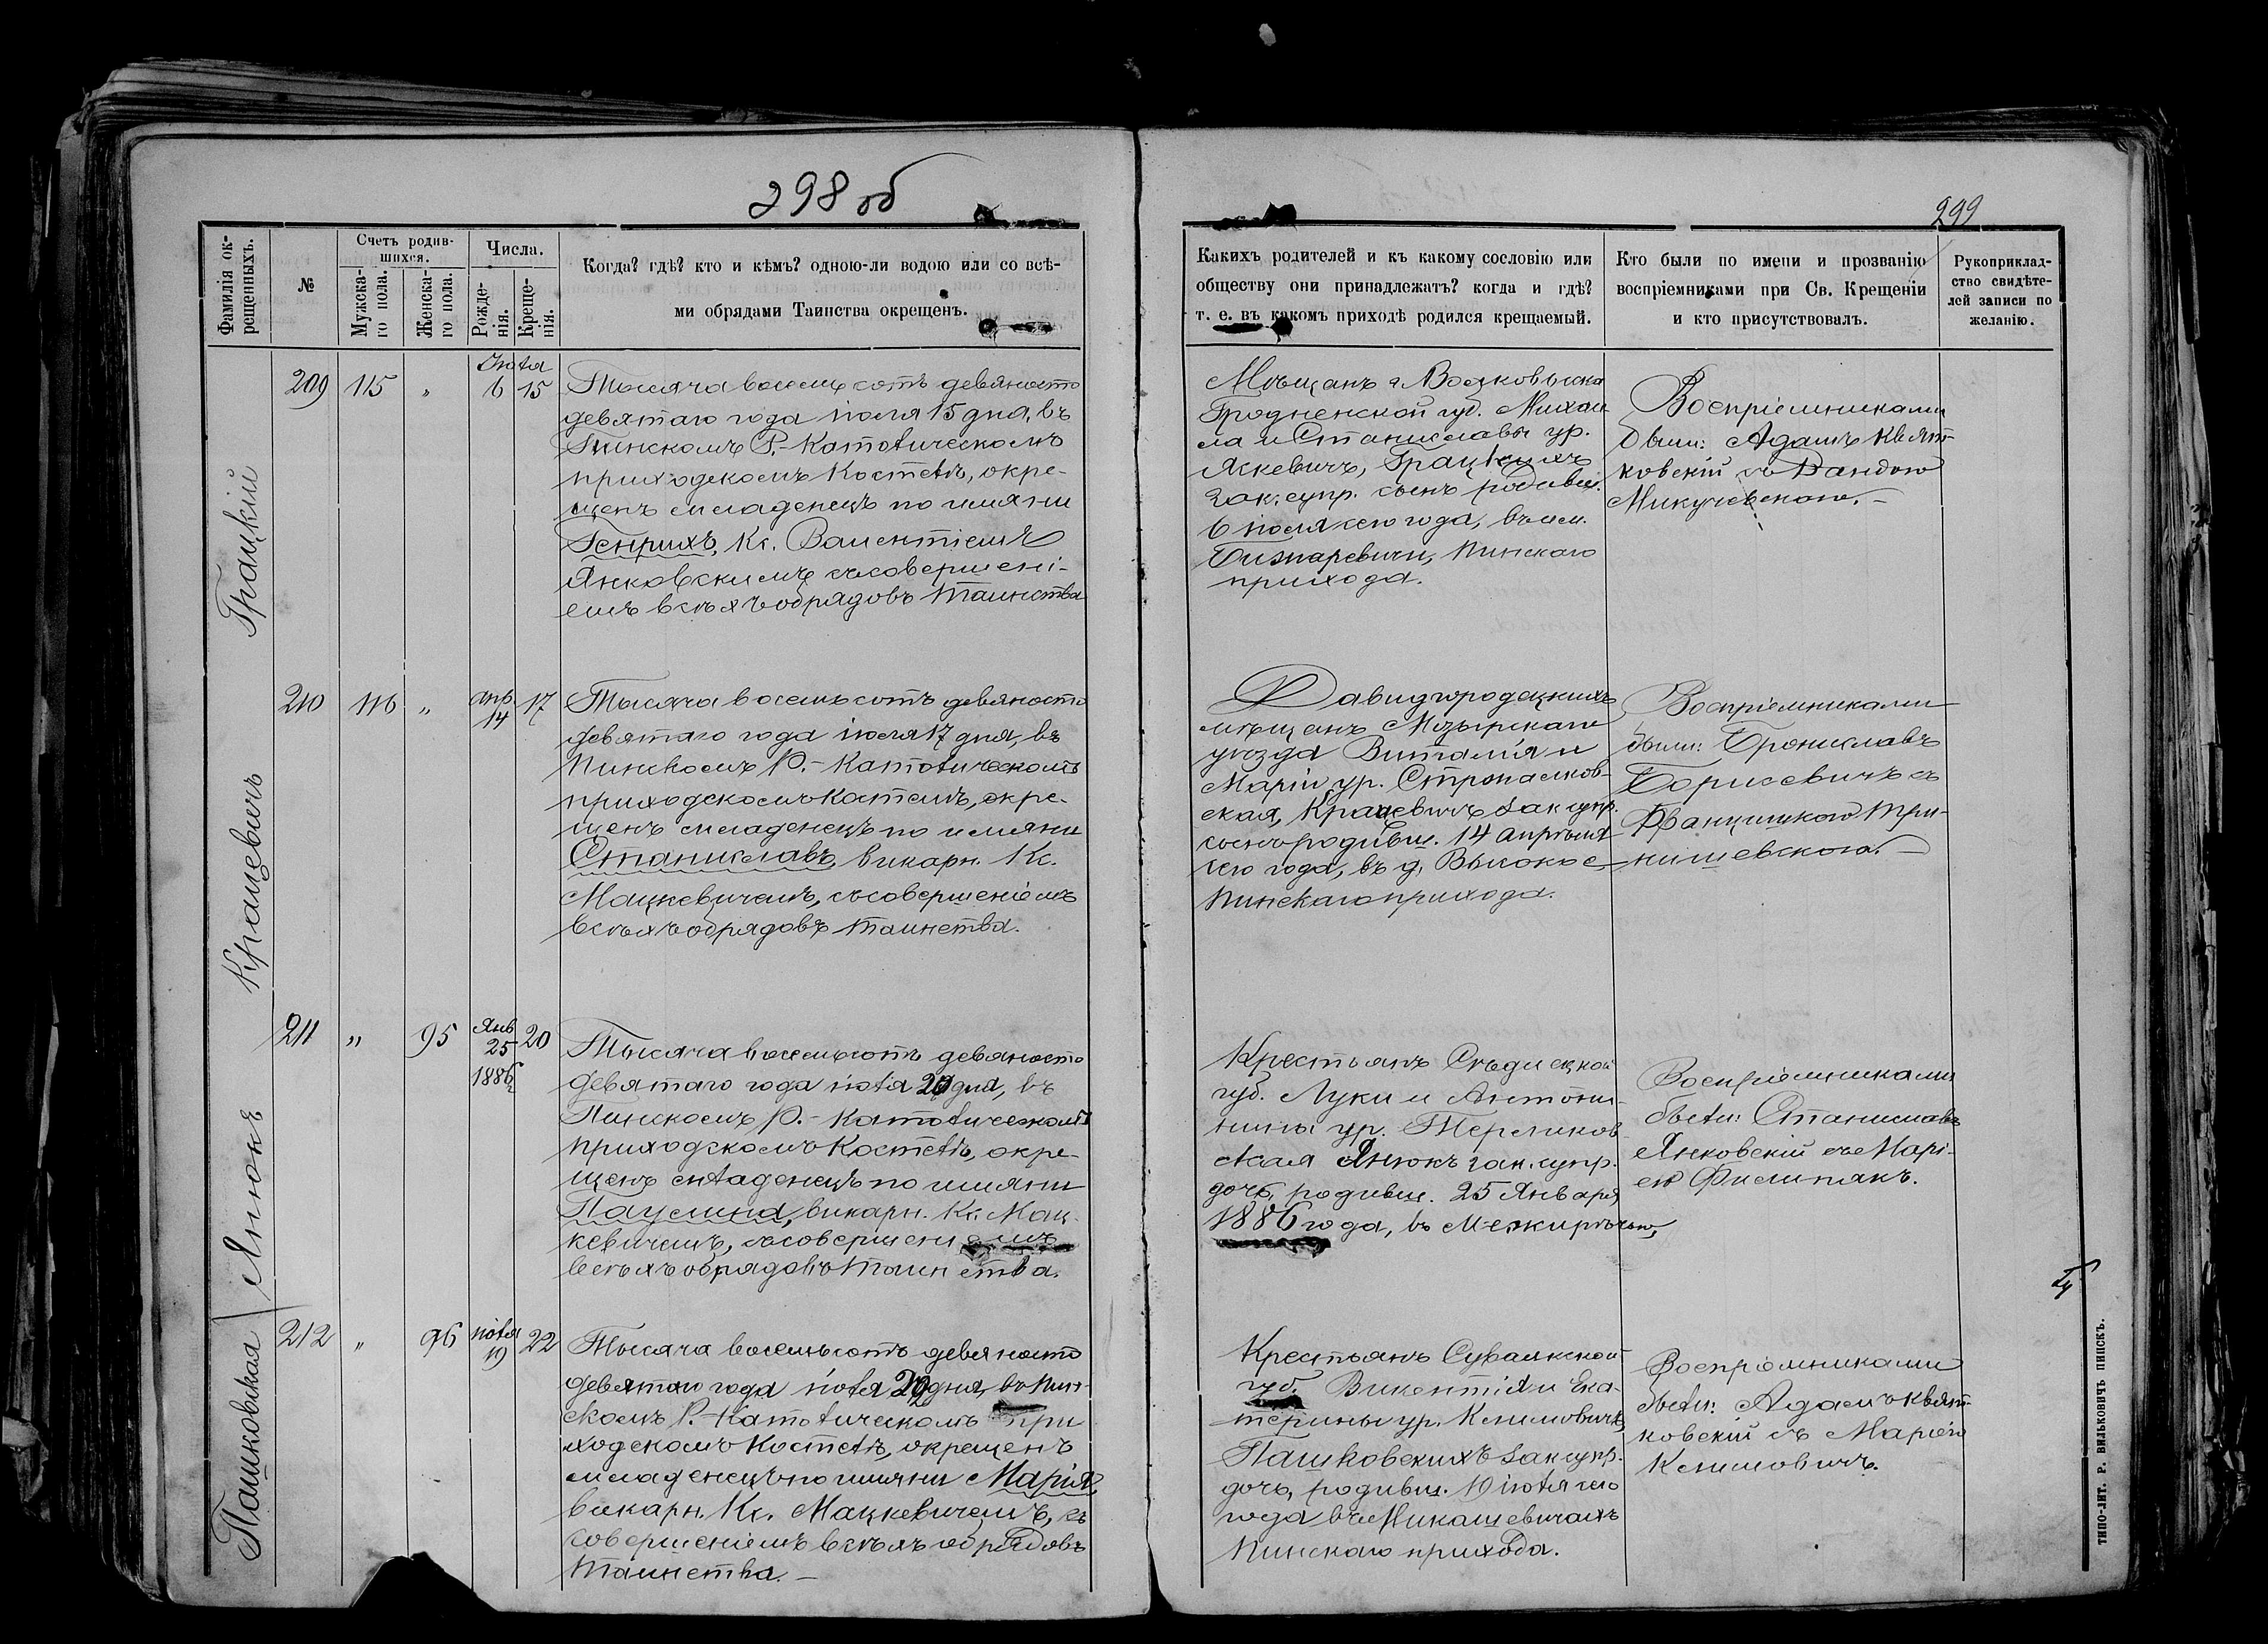 298 об
299
Фамилія ок-
рещенныхъ.
№
Счетъ родив-
шихся.
Мужска-
го пола.
Женска-
го пола.
Числа.
Рожде-
нія.
Креще-
нія.
Когда? гдѣ? кто и кѣмъ? одною-ли водою или со всѣ-
ми обрядами Таинства окрещенъ.
Какихъ родителей и къ какому сословію или
обществу они принадлежатъ? когда и гдѣ?
т. е. въ какомъ приходѣ родился крещаемый.
Кто были по имени и прозванію
воспріемниками при Св. Крещеніи
и кто присутствовалъ.
Рукоприклад-
ство свидѣте-
лей записи по
желанію.
Грацкій
209 115 „ Іюля
6 15
Тысяча восемь сотъ девяносто
девятаго года іюля 15 дня, въ
Пинскомъ Р.-Католическомъ
приходскомъ Костелѣ, окре-
щенъ младенецъ по имяни
Генрихъ, Кс. Валентіемъ
Янковскимъ съ совершені-
емъ всѣхъ обрядовъ таинства
Мѣщанъ г. Волковыска
Гродненской губ. Михаи-
ла и Станиславы ур.
Яскевичъ, Грацкихъ
зак. супр. сынъ родивш.
6 іюля сего года, въ им.
Пинскаго
прихода.
Воспріемниками
были: Адамъ Квят-
ковскій съ Вандою
Микучевскою.
Крашевичъ
210 116 „ апр.
14 17
Тысяча восемь сотъ девяносто
девятаго года іюля 17 дня, въ
Пинскомъ Р.-Католическомъ
приходскомъ Костелѣ, окре-
щенъ младенецъ по имяни
Станиславъ, викарн. Кс.
Мацкевичемъ, съ совершеніемъ
всѣхъ обрядовъ таинства.
Давидгородецкихъ
мѣщанъ Мозырскаго
уѣзда Виталія и
Маріи ур.
зак супр.
сынъ родивш. 14 апрѣля
сего года, въ д. Высокое
Пинскаго прихода.
Воспріемниками
были: Брониславъ
Борисевичъ съ
Францишкою Три-
нишевскою.
Янюкъ
211 „ 95 Янв
25 20
1886
Тысяча восемь сотъ девяносто
девятаго года іюля 20 дня, въ
Пинскомъ Р.-Католическомъ
приходскомъ Костелѣ, окре-
щенъ младенецъ по имяни
Паулина, викарн. Кс. Мац-
кевичемъ, съ совершеніемъ
всѣхъ обрядовъ таинства.
Крестьянъ Сѣдлецкой
губ. Луки и Антони-
нины ур. Терликов-
ская Янюкъ зак. супр.
дочь, родивш. 25 Января
1886 года, въ Межирѣчью,
Воспріемниками
были: Станиславъ
Янковскій съ Марі-
ею Филипякъ.
Пашковская
212 „ 96 іюля
19 22
Тысяча восемь сотъ девяносто
девятаго года іюля 22 дня, въ Пин-
скомъ Р.-Католическомъ при
ходскомъ Костелѣ, окрещенъ
младенецъ по имяни Марія,
викарн. Кс. Мацкевичемъ, съ
совершеніемъ всѣхъ обрядовъ
таинства.
Крестьянъ Сувалкской
губ. Викентія и Ека-
терины ур. Климовичъ,
Пашковскихъ зак супр.
дочь, родивш. 19 іюля сего
года, въ Микашевичахъ
Пинскаго прихода.
Воспріемниками
были: Адамъ Квят-
ковскій съ Маріею
Климовичъ.
ТИПО-ЛИТ. Р. ВИЛЬКОВИЧЪ ПИНСКЪ.